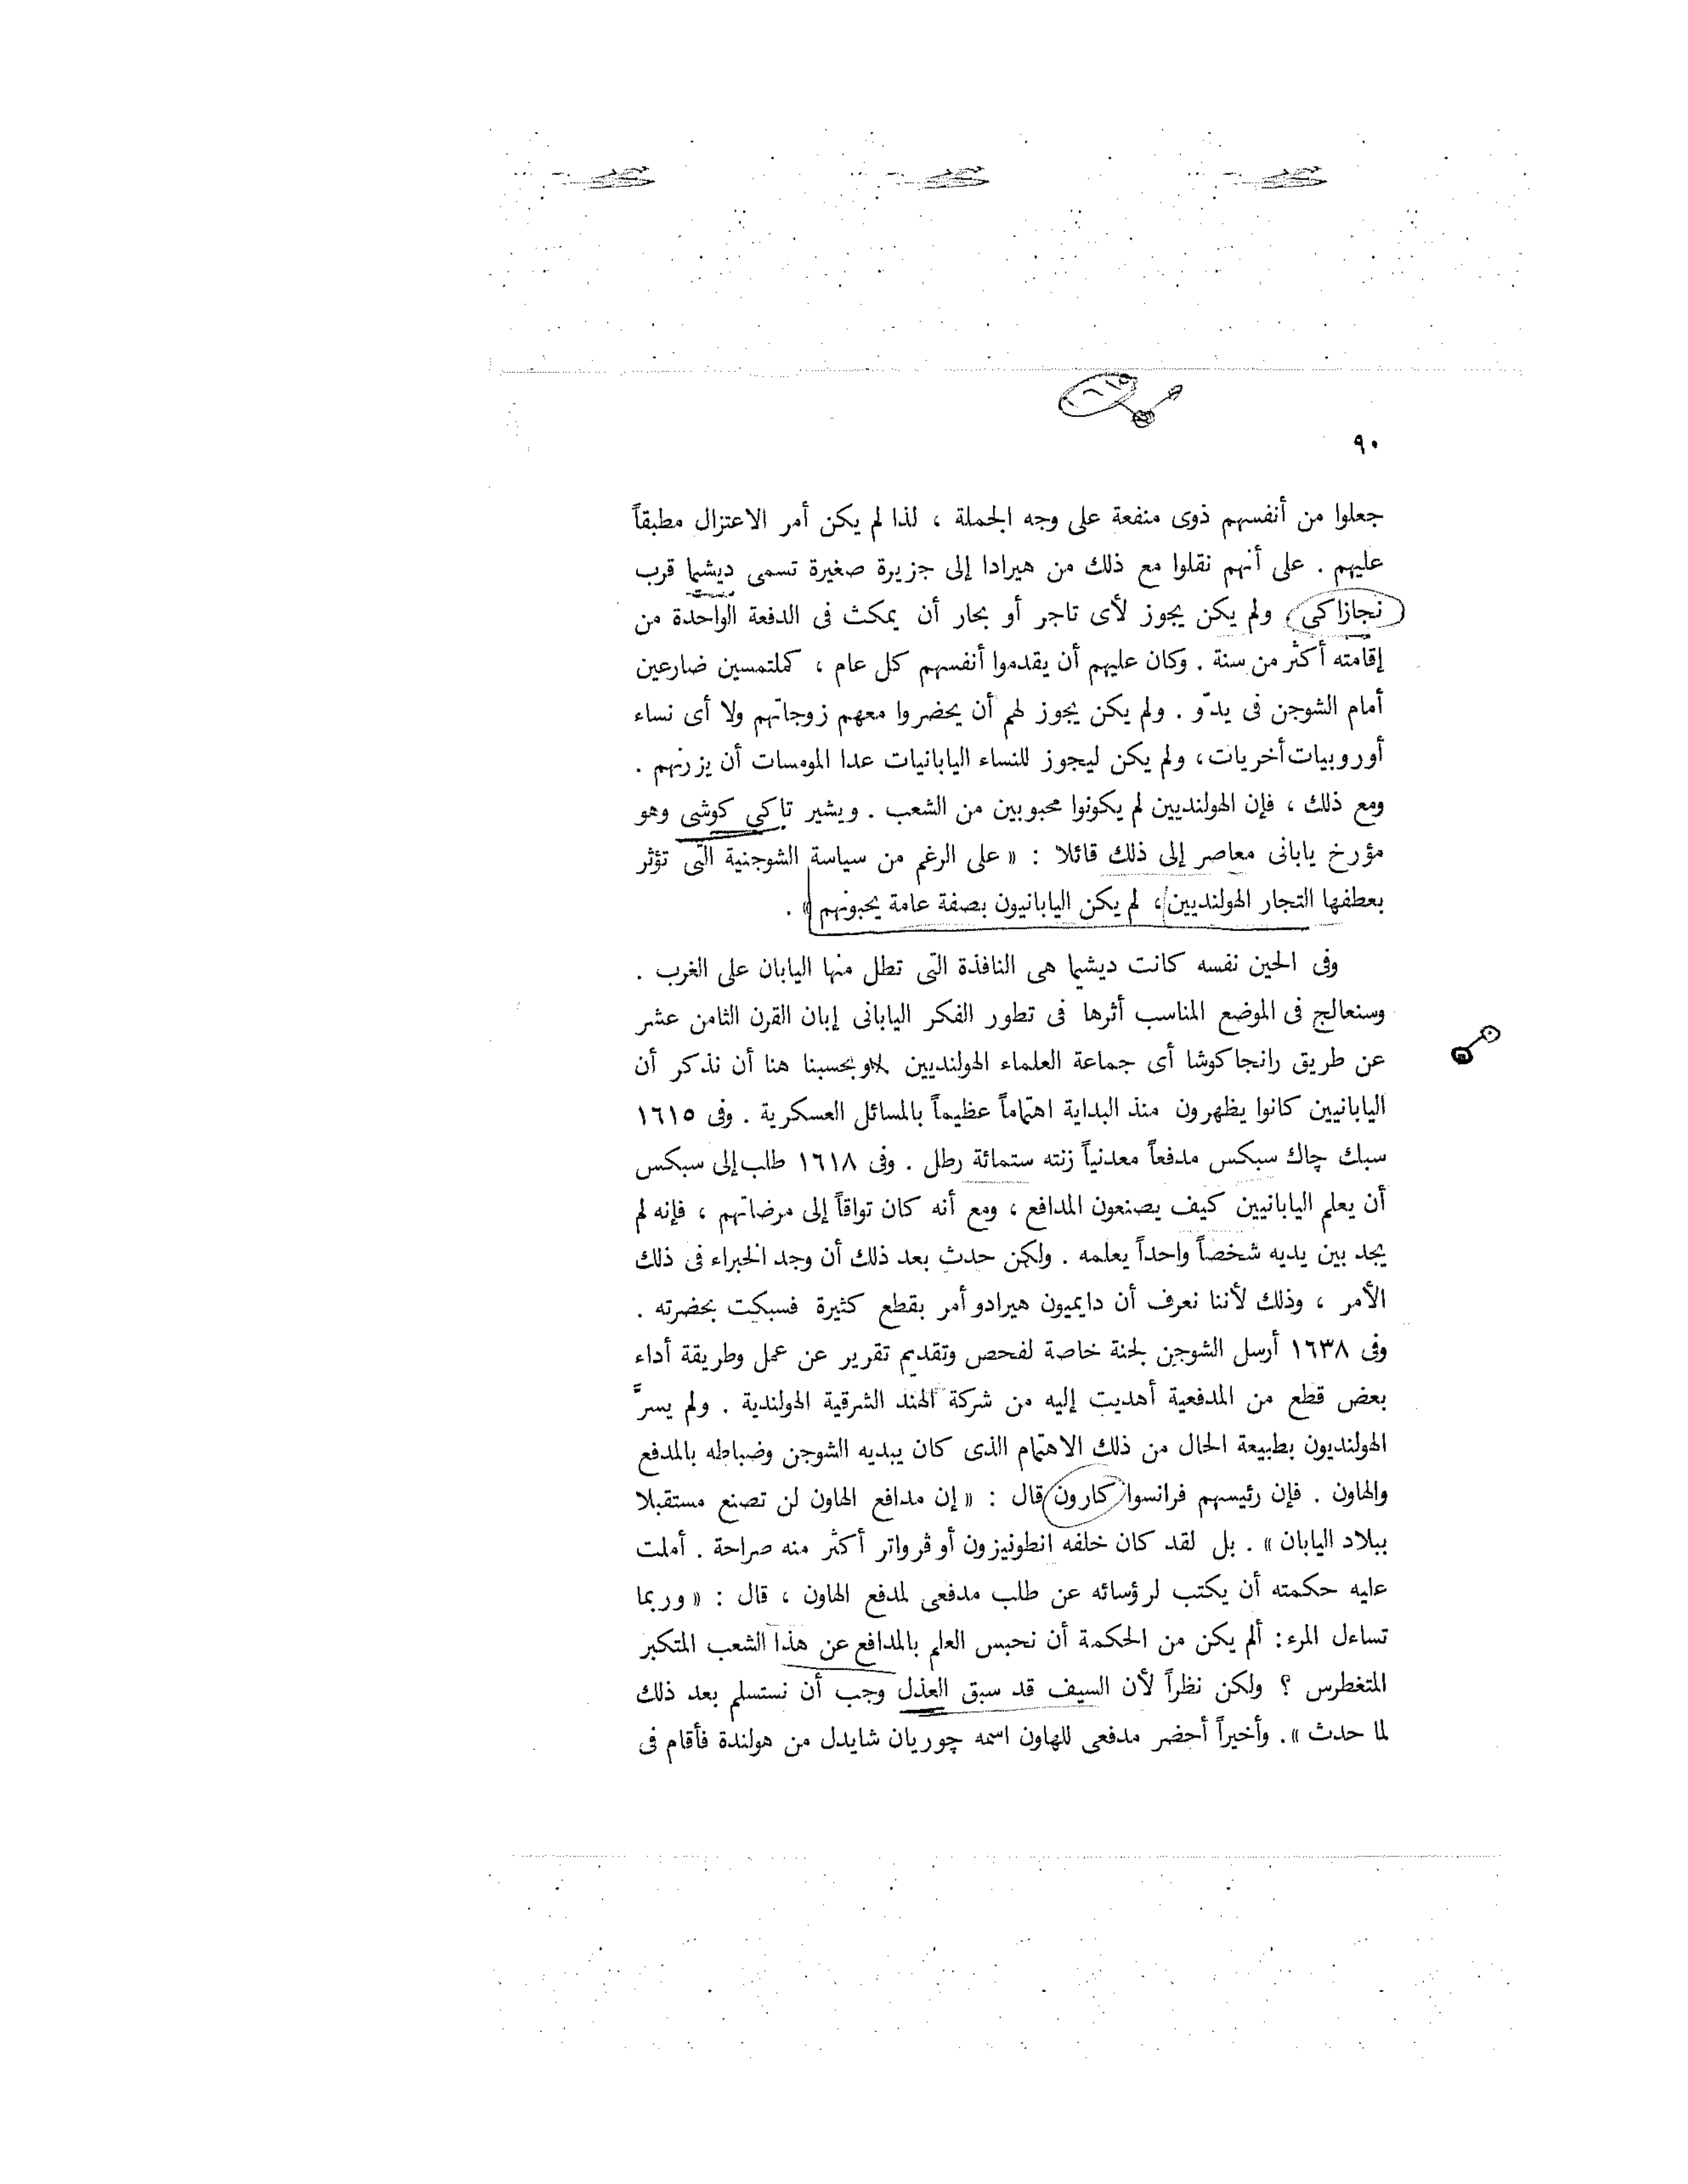 ٩٠
جعلوا من أنفسهم ذوى منفعة على وجه الجملة ، لذا لم يكن أمر الاعتزال مطبقاً
عليهم . على أنهم نقلوا مع ذلك من هيرادا إلى جزيرة صغيرة تسمى ديشيما قرب
نجازاكى ولم يكن يجوز لأى تاجر أو بحار أن يمكث فى الدفعة الواحدة من
إقامته أكثر من سنة . وكان عليهم أن يقدموا أنفسهم كل عام ، كملتمسين ضارعين
أمام الشوجن فى يدّو . ولم يكن يجوز لهم أن يحضروا معهم زوجاتهم ولا أى نساء
أوروبيات أخريات ، ولم يكن ليجوز للنساء اليابانيات عدا المومسات أن يزرنهم .
ومع ذلك ، فإن الهولنديين لم يكونوا محبوبين من الشعب . ويشير تاكى كوشى وهو
مؤرخ يابانى معاصر إلى ذلك قائلا : « على الرغم من سياسة الشوجنية التى تؤثر
بعطفها التجار الهولنديين ، لم يكن اليابانيون بصفة عامة يحبونهم » .
وفى الحين نفسه كانت ديشيما هى النافذة التى تطل منها اليابان على الغرب .
وسنعالج فى الموضع المناسب أثرها فى تطور الفكر اليابانى إبان القرن الثامن عشر
عن طريق رانجاكوشا أى جماعة العلماء الهولنديين وبحسبنا هنا أن نذكر أن
اليابانيين كانوا يظهرون منذ البداية اهتماماً عظيماً بالمسائل العسكرية . وفى ١٦١٥
سبك چاك سبكس مدفعاً معدنياً زنته ستمائة رطل . وفى ١٦١٨ طلب إلى سبكس
أن يعلم اليابانيين كيف يصنعون المدافع ، ومع أنه كان تواقاً إلى مرضاتهم ، فإنه لم
يجد بين يديه شخصاً واحداً يعلمه . ولكن حدث بعد ذلك أن وجد الخبراء فى ذلك
الأمر ، وذلك لأننا نعرف أن دايميون هيرادو أمر بقطع كثيرة فسبكت بحضرته .
وفى ١٦٣٨ أرسل الشوجن لجنة خاصة لفحص وتقديم تقرير عن عمل وطريقة أداء
بعض قطع من المدفعية أهديت إليه من شركة الهند الشرقية الهولندية . ولم يسرَّ
الهولنديون بطبيعة الحال من ذلك الاهتمام الذى كان يبديه الشوجن وضباطه بالمدفع
والهاون . فإن رئيسهم فرانسوا كارون قال : « إن مدافع الهاون لن تصنع مستقبلا
ببلاد اليابان » . بل لقد كان خلفه انطونيزون أو ڤرواتر أكثر منه صراحة . أملت
عليه حكمته أن يكتب لرؤسائه عن طلب مدفعى لمدفع الهاون ، قال : « وربما
تساءل المرء : ألم يكن من الحكمة أن نحبس العلم بالمدافع عن هذا الشعب المتكبر
المتغطرس ؟ ولكن نظراً لأن السيف قد سبق العذل وجب أن نستسلم بعد ذلك
لما حدث » . وأخيراً أحضر مدفعى للهاون اسمه چوريان شايدل من هولندة فأقام فى